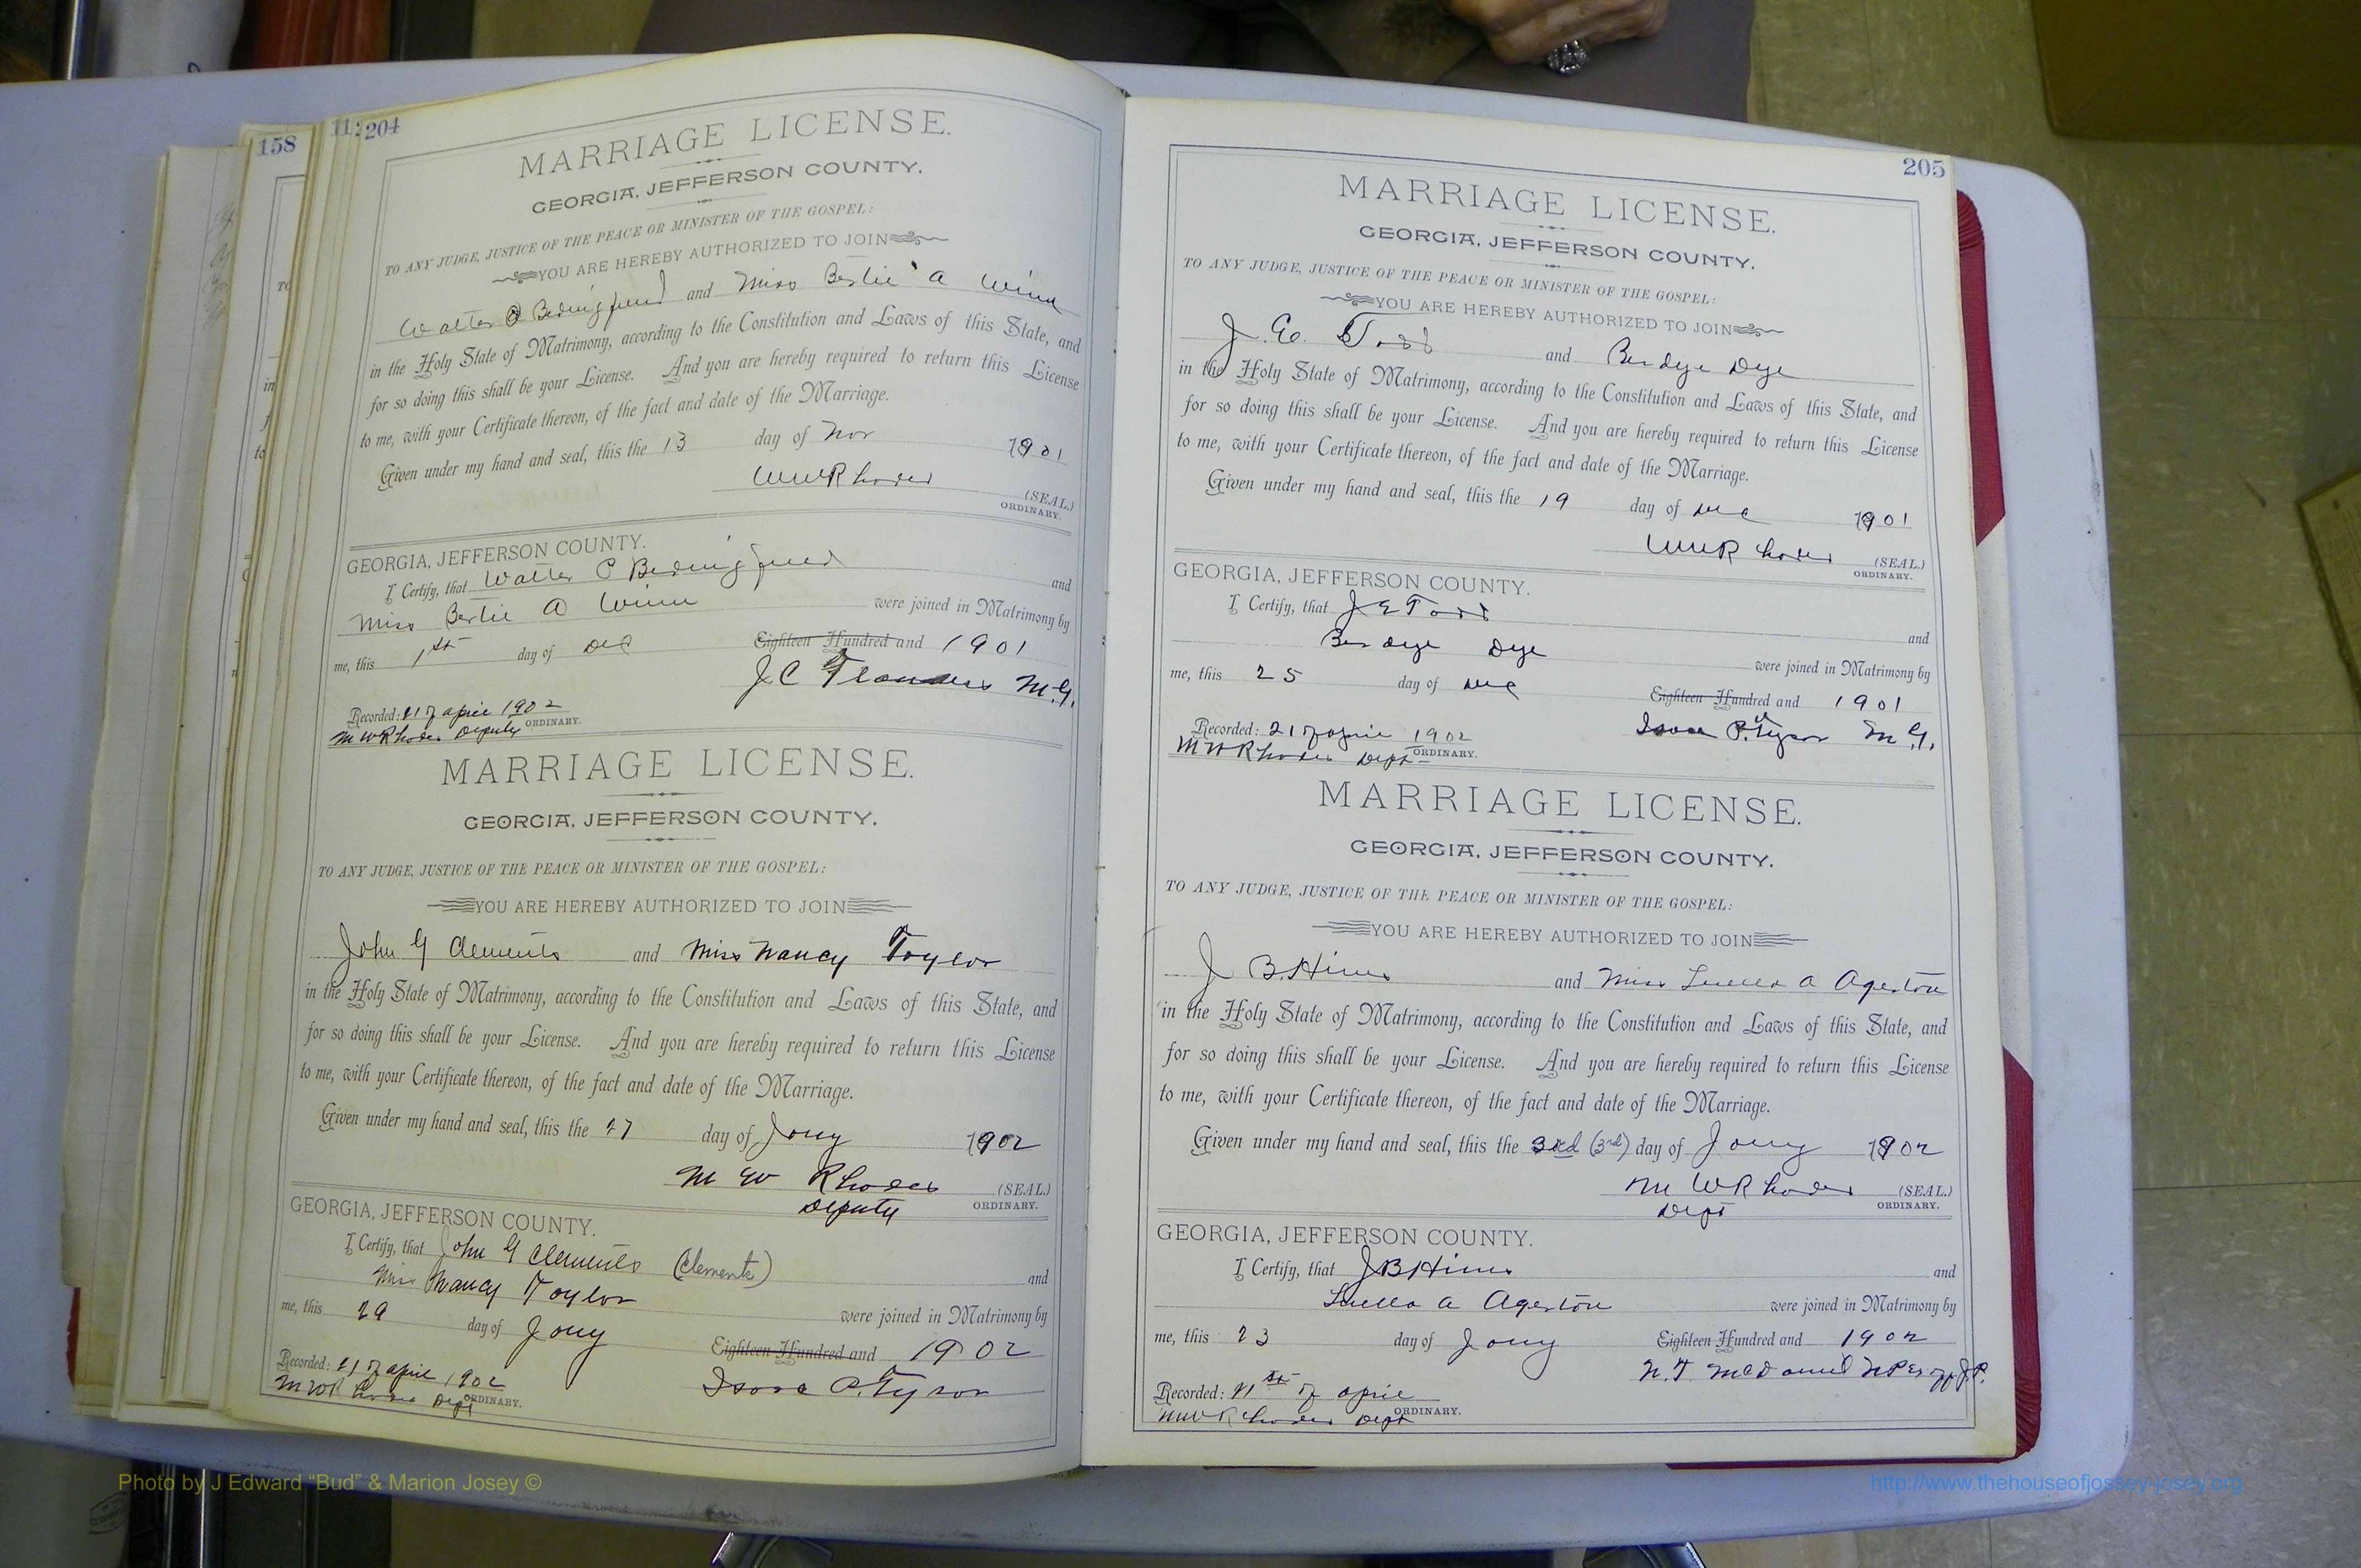 158
11
204
MARRIAGE LICENSE.
GEORGIA, JEFFERSON COUNTY.
TO ANY JUDGE, JUSTICE OF THE PEACE OR MINISTER OF THE GOSPEL:
YOU ARE HEREBY AUTHORIZED TO JOIN
Walter and Miss Bertie A Winn
in the Holy State of Matrimony, according to the Constitution and Laws of this State, and
for so doing this shall be your License. And you are hereby required to return this License
to me, with your Certificate thereon, of the fact and date of the Marriage.
Given under my hand and seal, this the 13 day of Nov 1901
Rhodes (SEAL.)
ORDINARY.
GEORGIA, JEFFERSON COUNTY.
I Certify, that Walter and
Miss Bertie A Winn were joined in Matrimony by
me, this 1st day of Dec Eighteen Hundred and 1901
J C Flanders M.G.
Recorded: 21 of April 1902
M W Rhodes Deputy ORDINARY.
MARRIAGE LICENSE.
GEORGIA, JEFFERSON COUNTY.
TO ANY JUDGE, JUSTICE OF THE PEACE OR MINISTER OF THE GOSPEL:
YOU ARE HEREBY AUTHORIZED TO JOIN
John G Clements and Miss Nancy Taylor
in the Holy State of Matrimony, according to the Constitution and Laws of this State, and
for so doing this shall be your License. And you are hereby required to return this License
to me, with your Certificate thereon, of the fact and date of the Marriage.
Given under my hand and seal, this the 27 day of Jany 1902
M W Rhodes (SEAL.)
Deputy ORDINARY.
GEORGIA, JEFFERSON COUNTY.
I Certify, that John G Clements (Clements) and
Miss Nancy Taylor were joined in Matrimony by
me, this 29 day of Jany Eighteen Hundred and 1902
P. Tyson
Recorded: 21 of April 1902
M W Rhodes Dept ORDINARY.
205
MARRIAGE LICENSE.
GEORGIA, JEFFERSON COUNTY.
TO ANY JUDGE, JUSTICE OF THE PEACE OR MINISTER OF THE GOSPEL:
YOU ARE HEREBY AUTHORIZED TO JOIN
J. E. Todd and Berdye Dye
in the Holy State of Matrimony, according to the Constitution and Laws of this State, and
for so doing this shall be your License. And you are hereby required to return this License
to me, with your Certificate thereon, of the fact and date of the Marriage.
Given under my hand and seal, this the 19 day of Dec 1901
Rhodes (SEAL.)
ORDINARY.
GEORGIA, JEFFERSON COUNTY.
I Certify, that J E Todd and
Berdye Dye were joined in Matrimony by
me, this 25 day of Dec Eighteen Hundred and 1901
P. Tyson M.G.
Recorded: 21 of April 1902
M W Rhodes Dept ORDINARY.
MARRIAGE LICENSE.
GEORGIA, JEFFERSON COUNTY.
TO ANY JUDGE, JUSTICE OF THE PEACE OR MINISTER OF THE GOSPEL:
YOU ARE HEREBY AUTHORIZED TO JOIN
J B. Hines and Miss Luella A Agerton
in the Holy State of Matrimony, according to the Constitution and Laws of this State, and
for so doing this shall be your License. And you are hereby required to return this License
to me, with your Certificate thereon, of the fact and date of the Marriage.
Given under my hand and seal, this the 3rd (3rd) day of Jany 1902
M W Rhodes (SEAL.)
Dept ORDINARY.
GEORGIA, JEFFERSON COUNTY.
I Certify, that J B Hines and
Luella A Agerton were joined in Matrimony by
me, this 23 day of Jany Eighteen Hundred and 1902
N. T. McDaniel J.P.
Recorded: 21st of April
M W Rhodes Dept ORDINARY.
Photo by J Edward “Bud” & Marion Josey ©
http://www.thehouseofjossey-josey.org